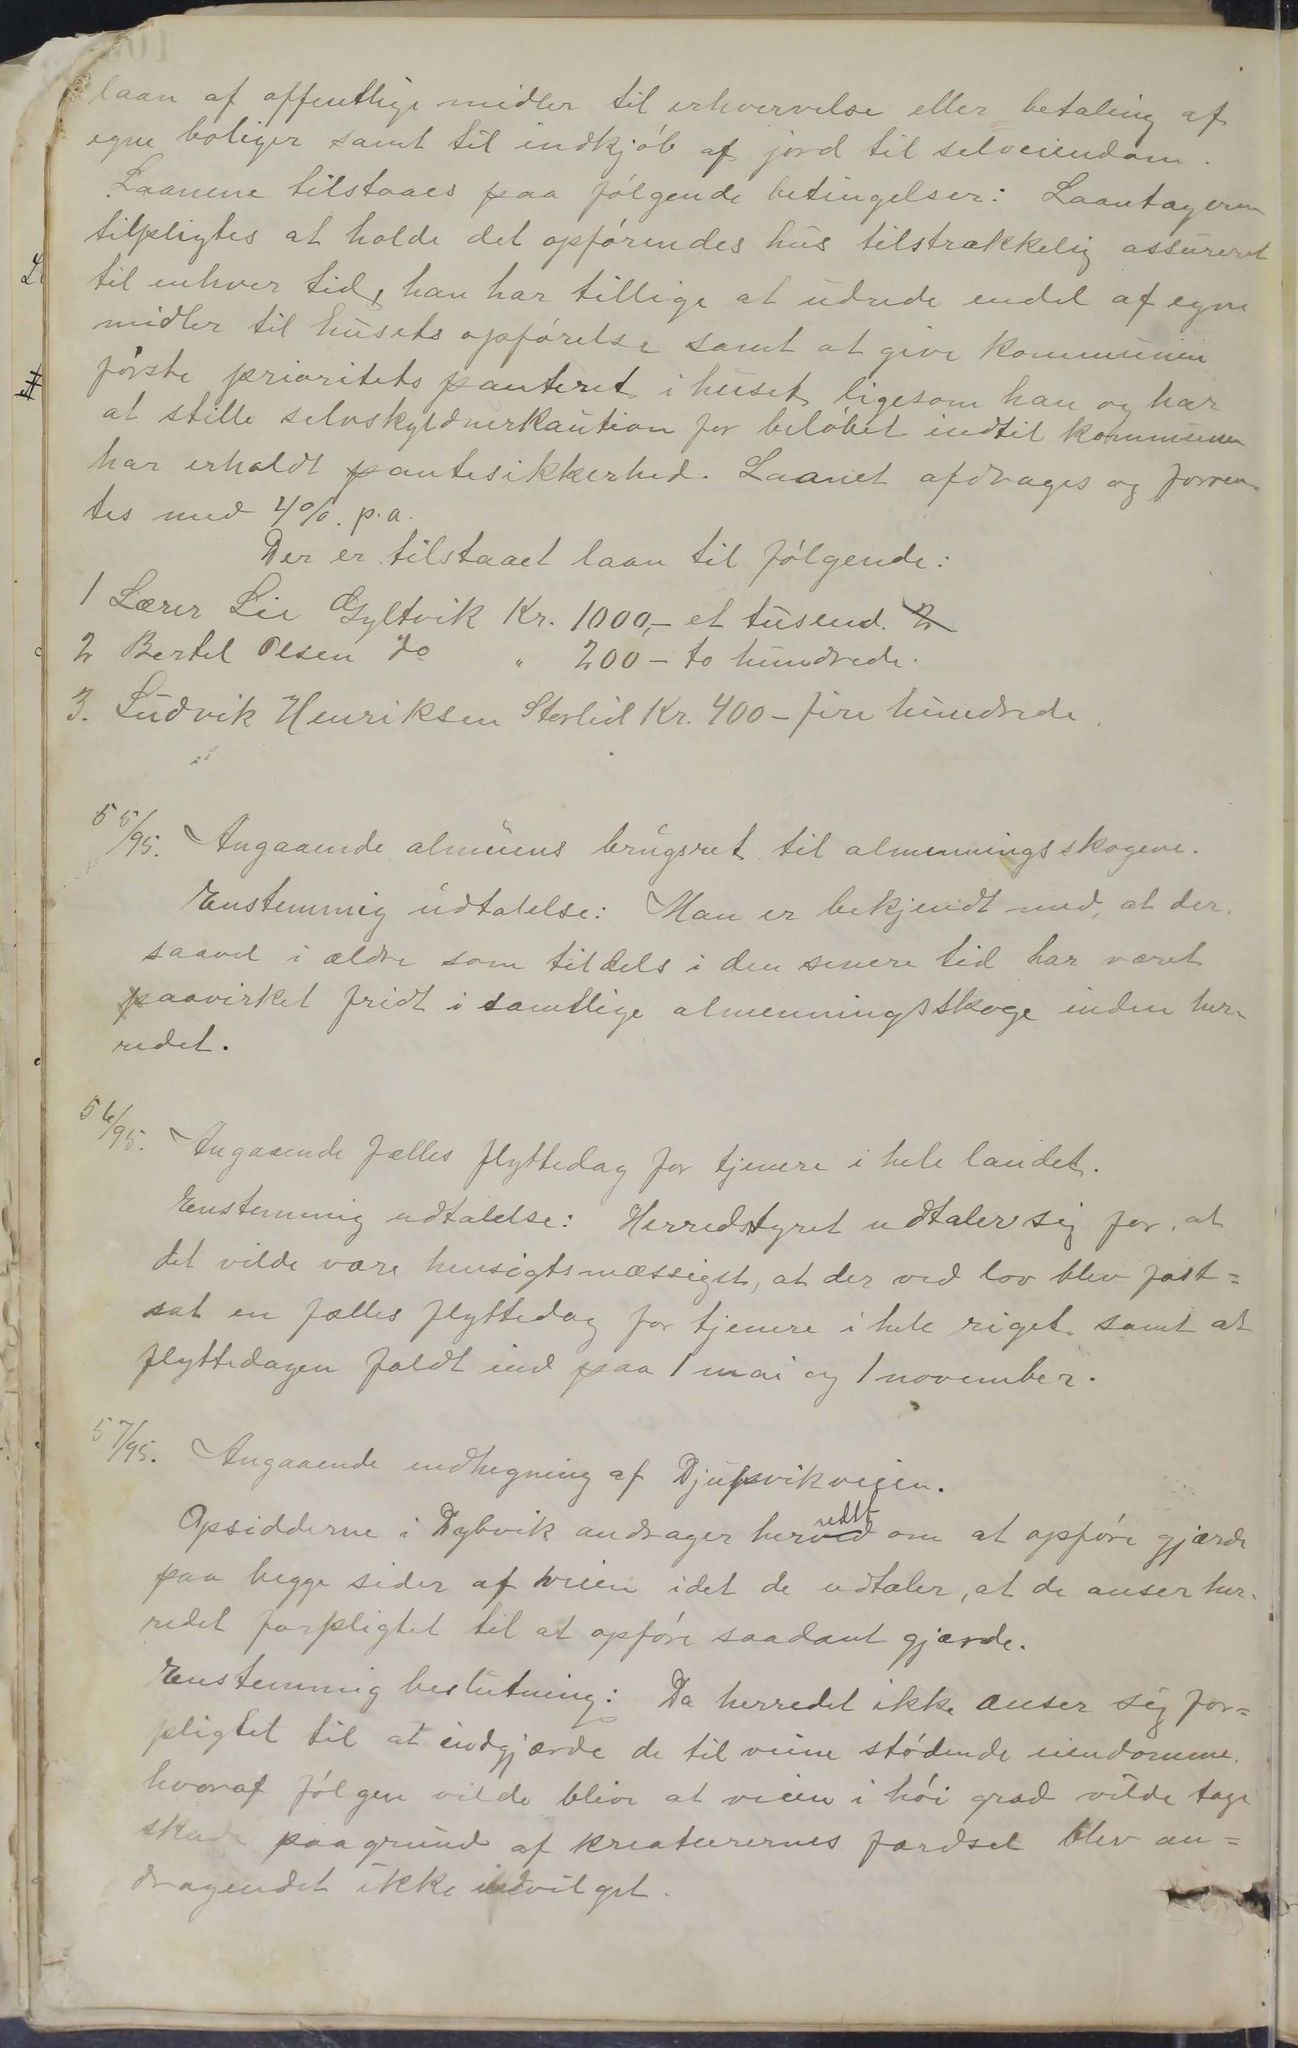 laan af offentlige midler til erhvervelse eller betaling af
egne boliger samt til indkjøb af jord til selveiendom.
Laanene tilstaaes paa følgende betingelser: Laantageren
tilpligtes at holde det opførendes hus tilstrækkelig assureret
til enhver tid, han har tillige at udrede endel af egne
midler til husets opførelse samt at give kommunen
første prioritets panteret i huset ligesom han og har
at stille selvskyldnerkaution for beløbet indtil kommunen
har erholdt pantesikkerhed. Laanet afdrages og forren-
tes med 4%. p.a.
Der er tilstaaet laan til følgende:
1 Lærer Lie Gyltvik Kr. 1000,- et tusend.
2 Bertel Olsen do " 200 - to hundrede.
3. Ludvik Henriksen Storlid Kr. 400 - fire hundrede.
55/95. Angaaende almuens brugsret til almenningsskogene.
Enstemmig udtalelse: Man er bekjendt med, at der
saavel i ældre som tildels i den senere tid har været
paavirket fridt i samtlige almenningsskoge inden her-
redet.
56/95. Angaaende fælles flyttedag for tjenere i hele landet.
Enstemmig udtalelse: Herredstyret udtaler sig for, at
det vilde være hensigtsmæssigst, at der ved lov blev fast=
sat en fælles flyttedag for tjenere i hele riget samt at
flyttedagen faldt ind paa 1 mai og 1 november.
57/95. Angaaende indhegning af Djupvikveien.
Opsidderne i Dybvik andrager herredet om at opføre gjærde
paa begge sider af veien idet de udtaler, at de anser her-
redet forpligtet til at opføre saadant gjærde.
Enstemmig beslutning: Da herredet ikke anser sig for=
pligtet til at indgjærde de til veien stødende eiendomme.
hvoraf følgen vilde blive at veien i høi grad vilde tage
skade paa grund af kreaturernes færdsel blev an=
dragendet ikke indvilget.